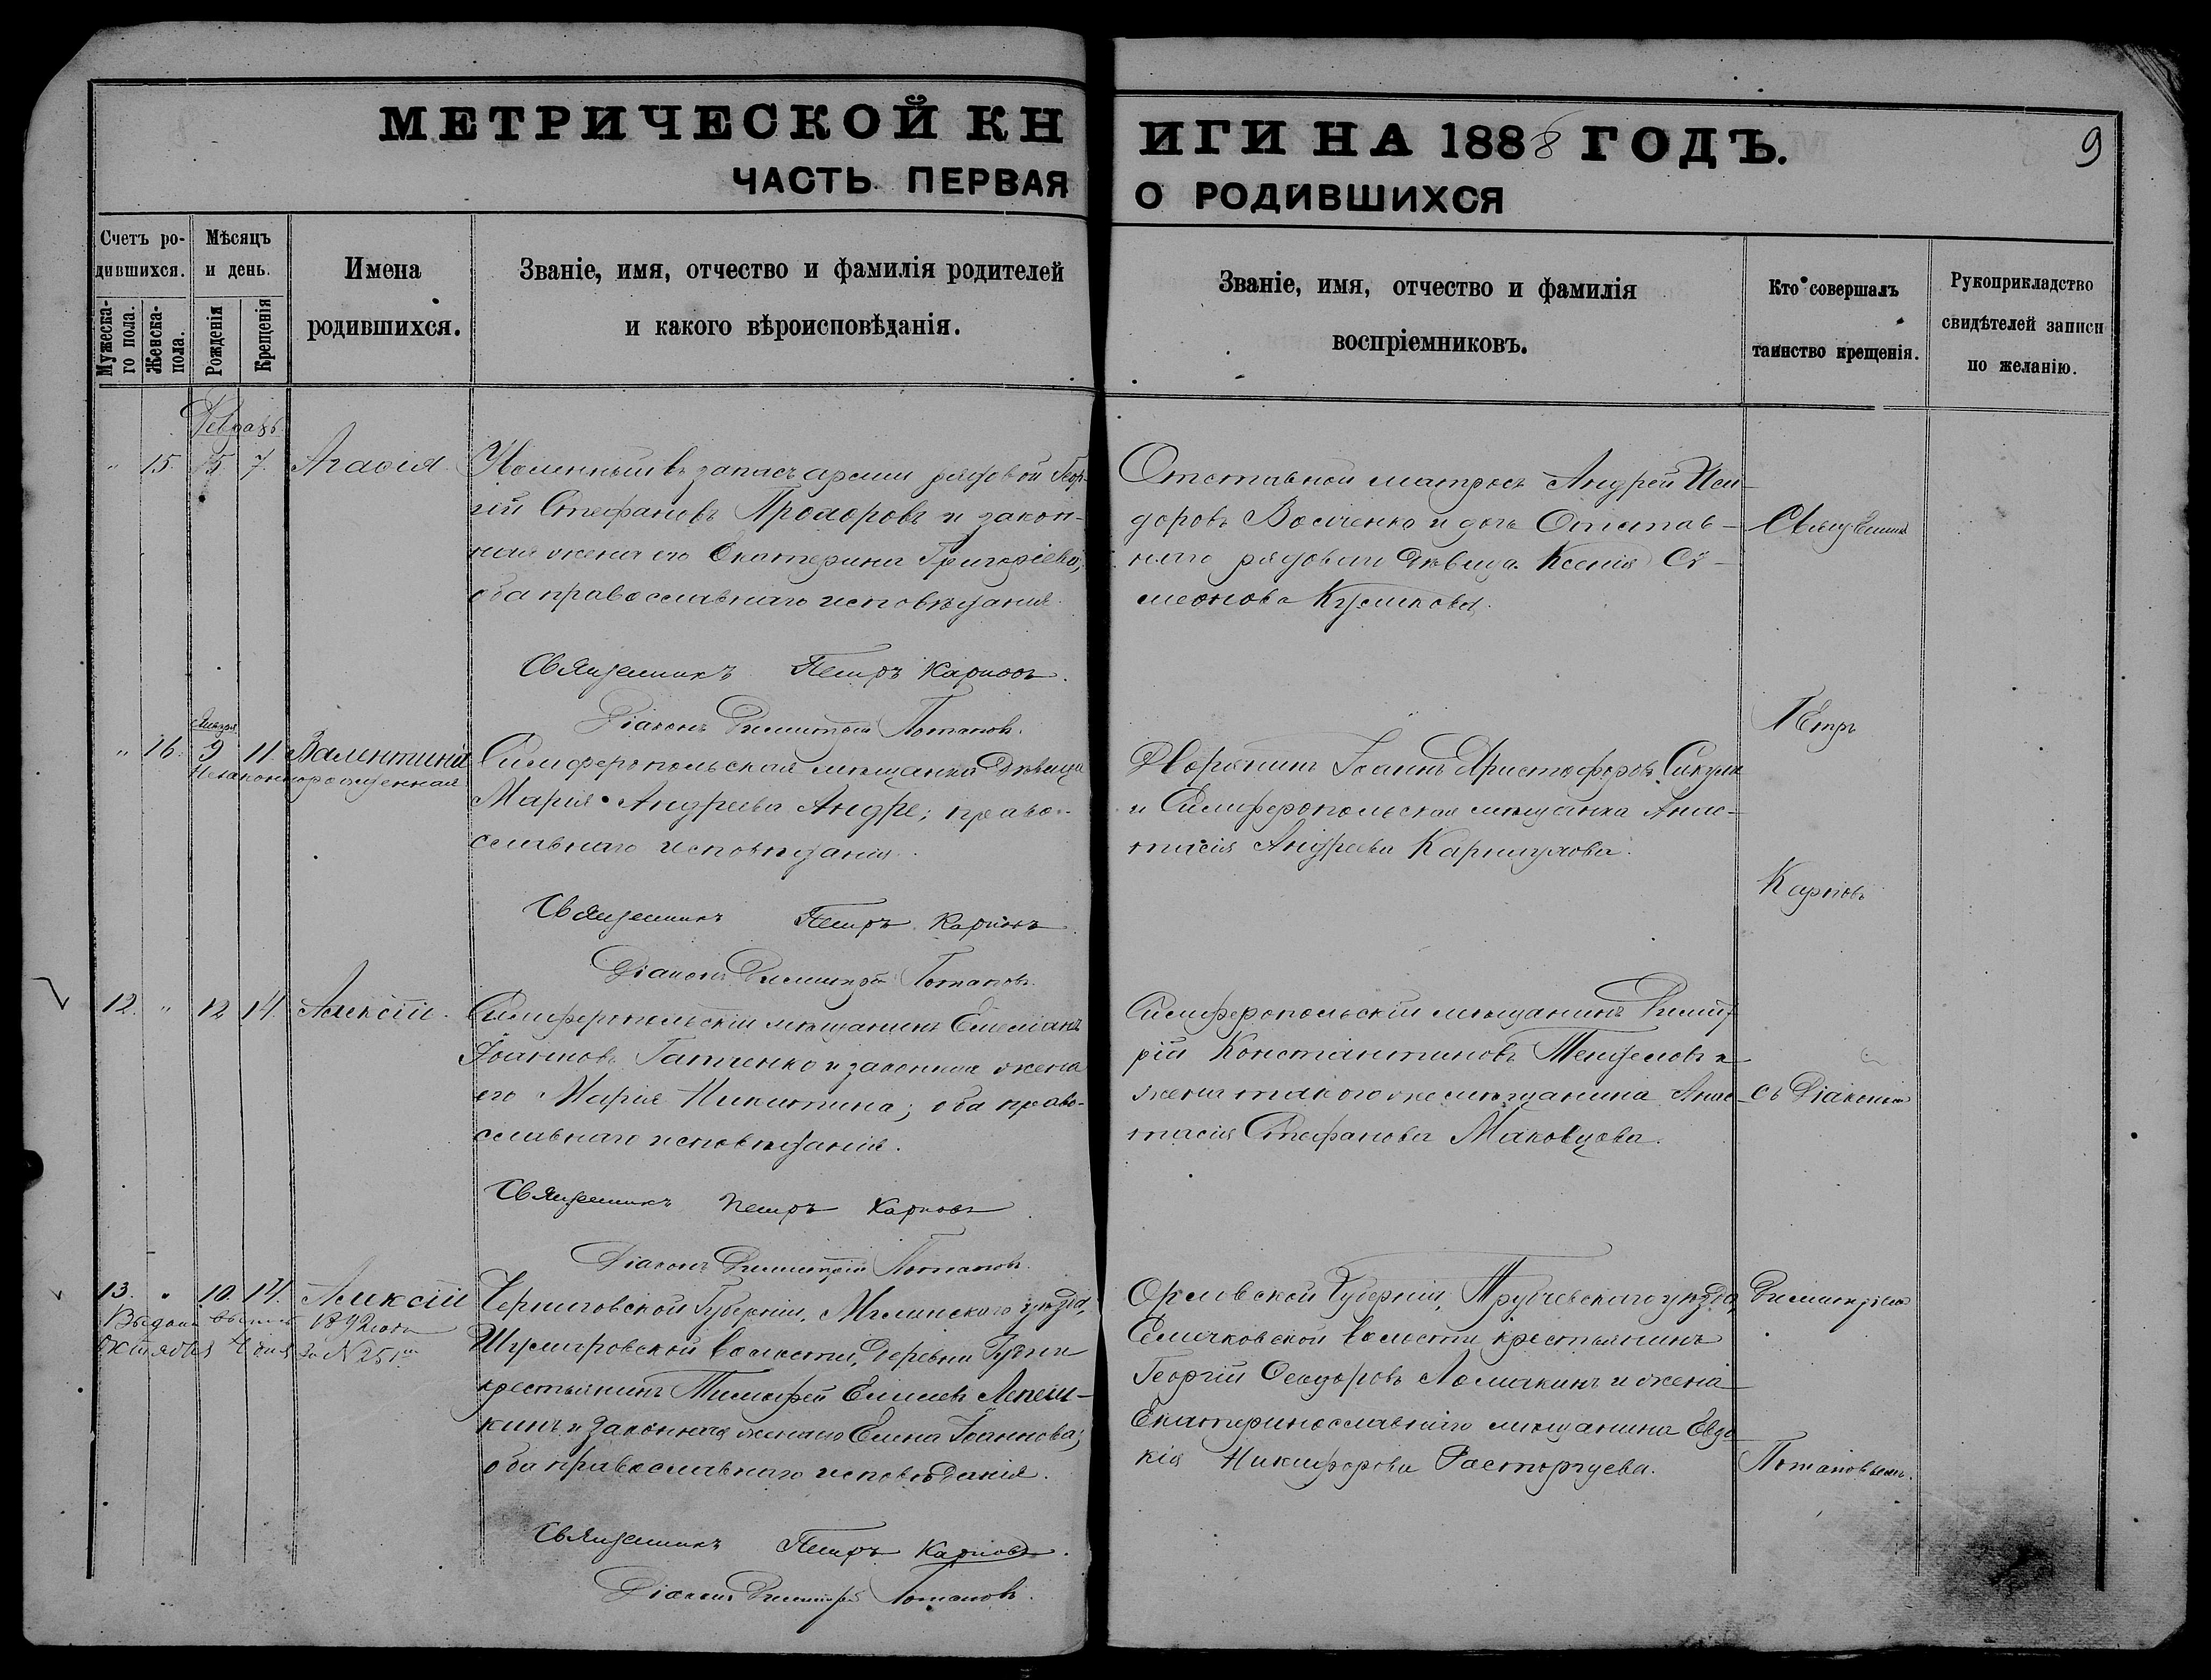 МЕТРИЧЕСКОЙ КНИГИ НА 1888 ГОДЪ.
9
ЧАСТЬ ПЕРВАЯ О РОДИВШИХСЯ
Счетъ родившихся.
Мужескаго пола.
Женска-пола.
Мѣсяцъ и день.
Рожденія
Крещенія
Имена
родившихся.
Званіе, имя, отчество и фамилія родителей
и какого вѣроисповѣданія.
Званіе, имя, отчество и фамилія
воспріемниковъ.
Кто совершалъ
таинство крещенія.
Рукоприкладство
свидѣтелей записи
по желанію.
Февраль
" 15. 5 7. Агаѳія
запасъ арміи рядовой Геор-
гій Стефановъ Прохоровъ и закон-
ная жена его Екатерина Григоріева;
оба православнаго исповѣданія.
Священникъ Петръ Карповъ.
Діаконъ Димитрій Потаповъ.
Отставной матросъ Андрей Иси-
доровъ и дочь Отстав-
наго рядоваго дѣвица Ксенія Сѵ-
меонова Куликова.
Священникъ
Петръ
Карповъ
съ Діакономъ
Димитріемъ
Потаповымъ.
Января
" 16. 9 11. Валентина
Незаконнорожденная
Симферопольская мѣщанка дѣвица
Марія Андреева Андре; право-
славнаго исповѣданія.
Священникъ Петръ Карповъ
Діаконъ Димитрій Потаповъ.
Дворянинъ Іоаннъ Христофоровъ
и Симферопольская мѣщанка Анас-
тасія Андреева
12. " 12 14. Алексій.
Симферопольскій мѣщанинъ Емеліанъ
Іоанновъ Гапченко и законная жена
его Марія Никитина; оба право-
славнаго исповѣданія.
Священникъ Петръ Карповъ
Діаконъ Димитрій Потаповъ.
Симферопольскій мѣщанинъ Димит-
рій Константиновъ и
жена такого же мѣщанина Анас-
тасія Стефанова Маковцова.
13. " 10. 14. Алексій
Выдана выпись 1892 года
Октября 4 дня за № 251
Черниговской Губерніи, Мглинскаго уѣзда,
волости, деревни
крестьянинъ Тимофей Елисеевъ Лепеш-
кинъ и законная жена его Елена Іоаннова;
оба православнаго исповѣданія.
Священникъ Петръ Карповъ.
Діаконъ Димитрій Потаповъ.
Орловской Губерніи, Трубчевскаго уѣзда,
Селичковской волости крестьянинъ
Георгій Ѳеодоровъ и жена
Екатеринославскаго мѣщанина Евдо
кія Никифорова Расторгуева.